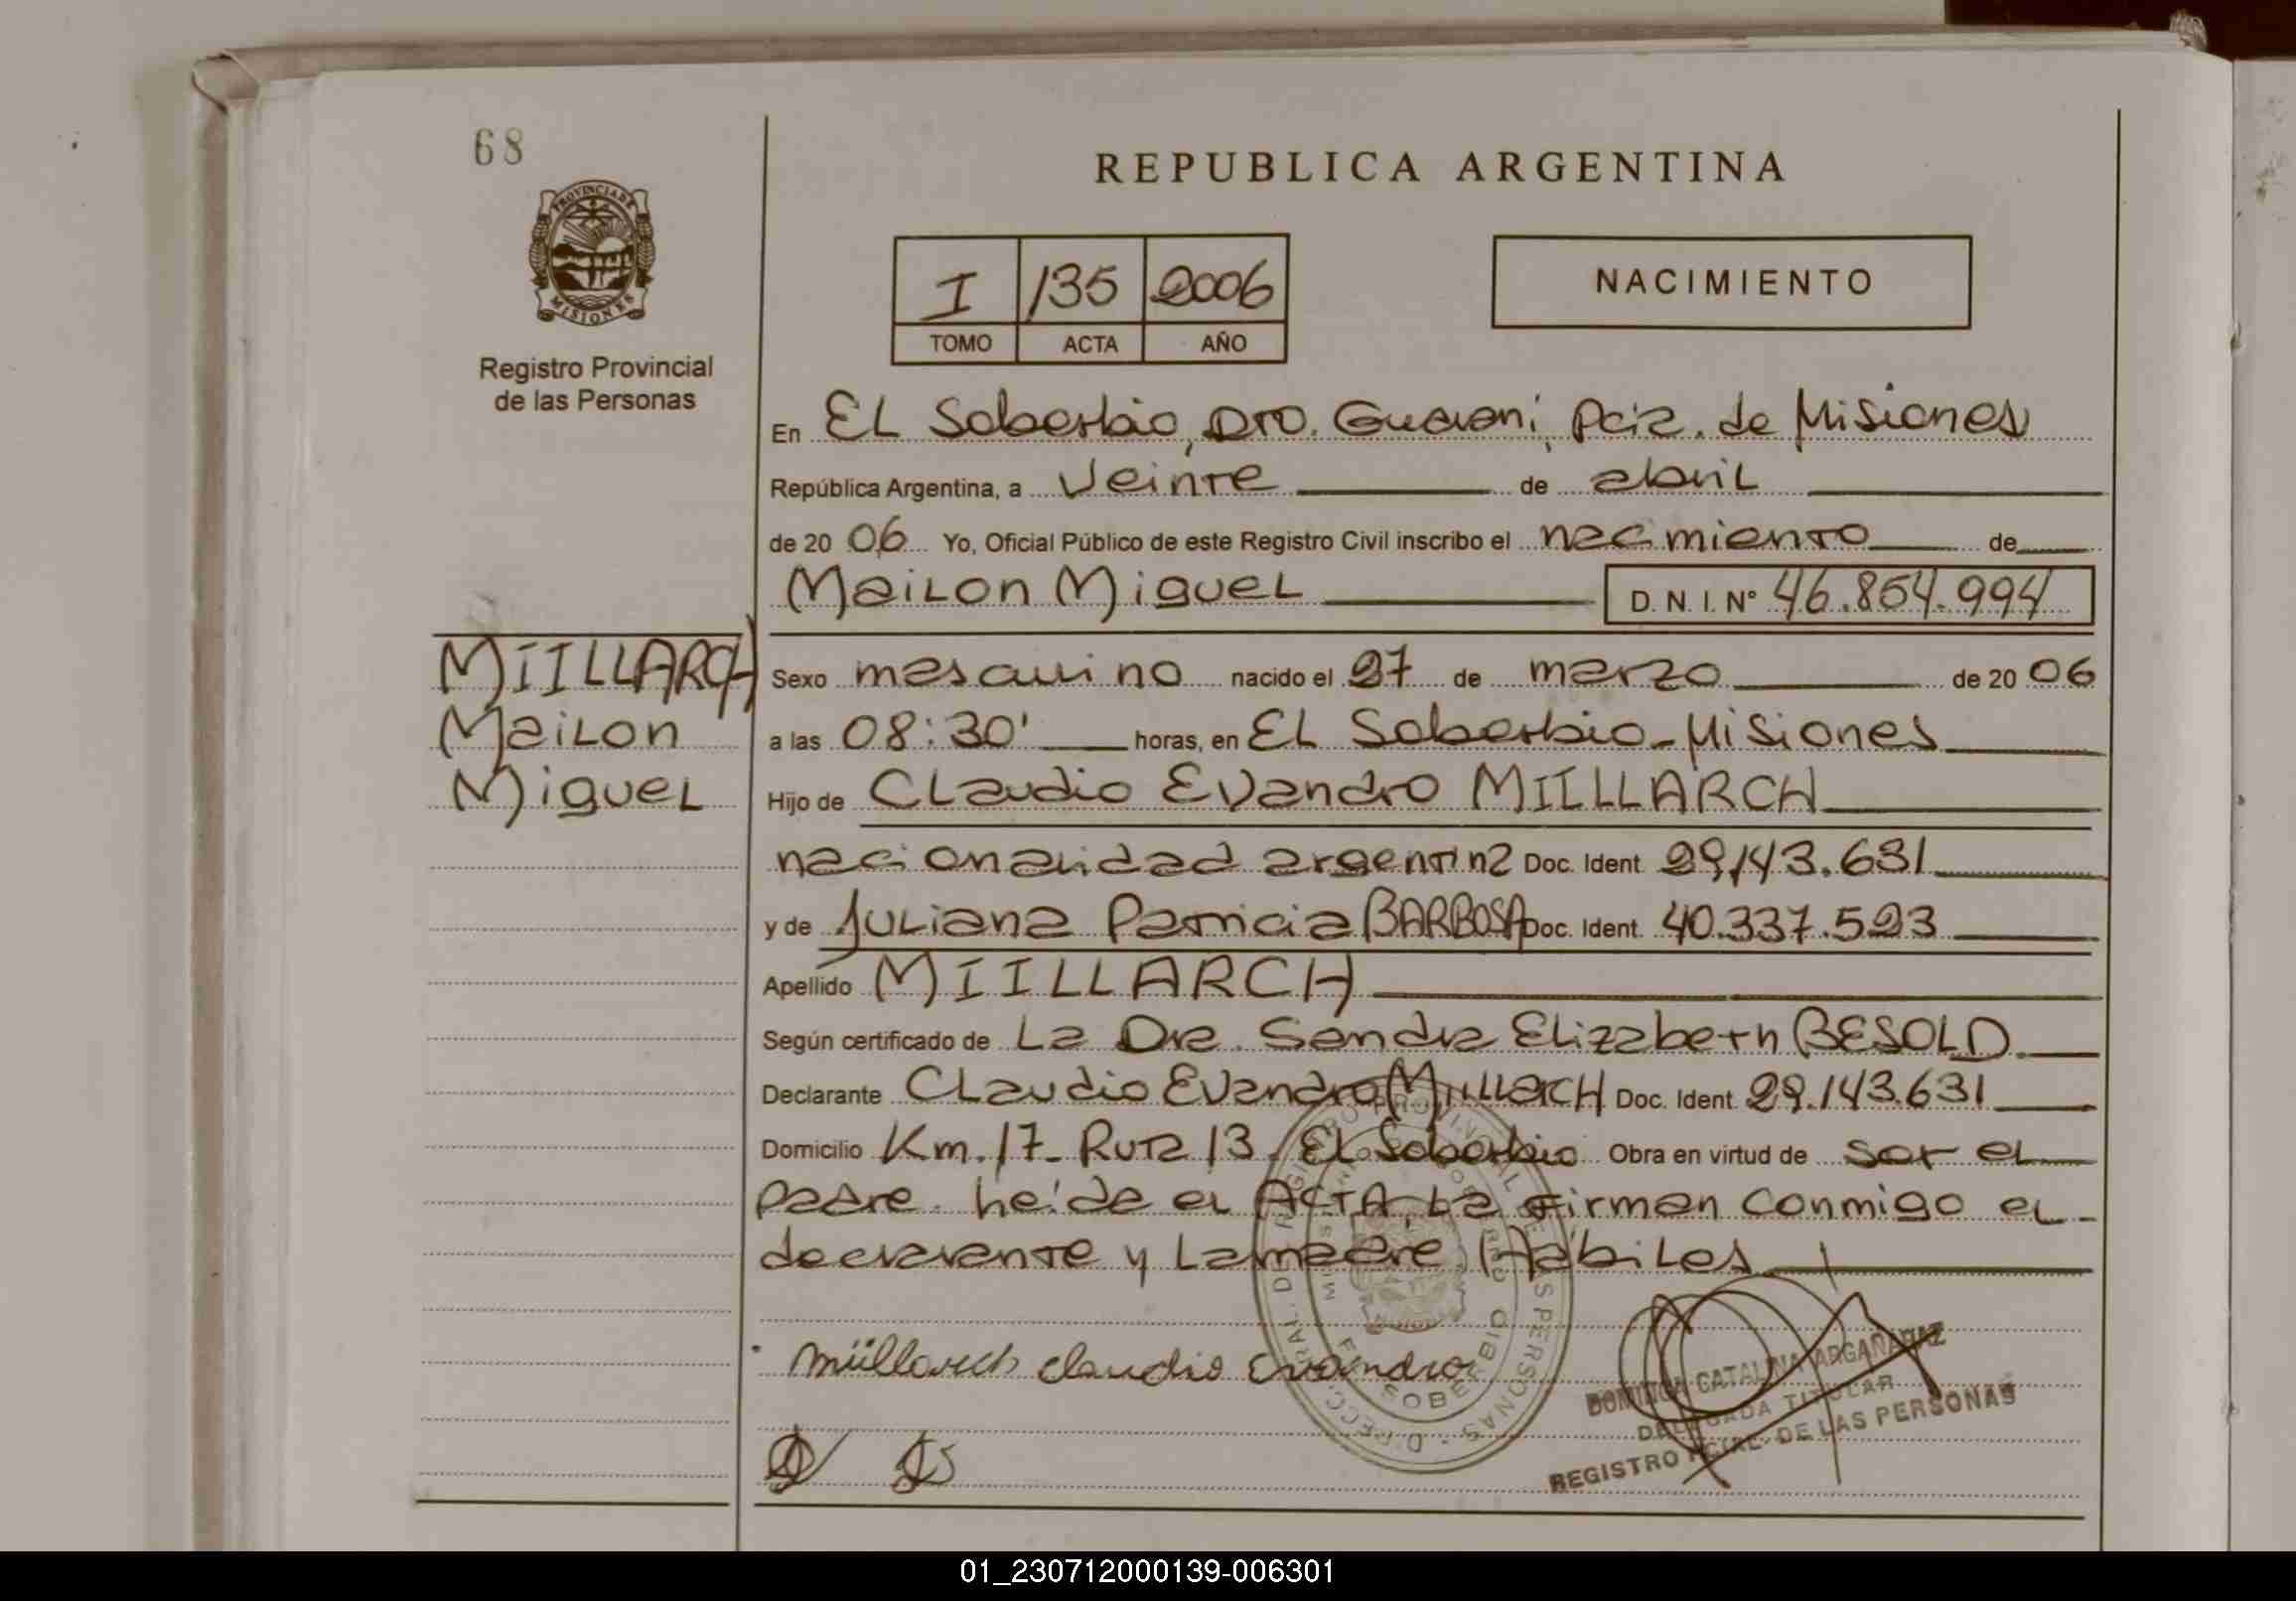 68
REPUBLICA ARGENTINA
PROVINCIA DE MISIONES
Registro Provincial
de las Personas
I 135 2006
TOMO ACTA AÑO
NACIMIENTO
En EL Soberbio, Dto. Guarani, Pcia. de Misiones
República Argentina, a veinte de abril
de 20 06 Yo, Oficial Público de este Registro Civil inscribo el nacimiento de
Mailon Miguel D. N. I. N° 46.854.994
MIILLARCH
Mailon
Miguel
Sexo masculino nacido el 27 de marzo de 20 06
a las 08:30' horas, en EL Soberbio - Misiones
Hijo de Claudio Evandro MIILLARCH
nacionalidad argentina Doc. Ident. 29.143.631
y de Juliana Patricia BARBOSA Doc. Ident. 40.337.523
Apellido MIILLARCH
Según certificado de La Dra. Sandra Elizabeth BESOLD.
Declarante Claudio Evandro MIILLARCH Doc. Ident. 29.143.631
Domicilio Km. 17 - Ruta 13 - EL Soberbio Obra en virtud de ser el
padre. Leida el ACTA, La Firman conmigo el
declarante y La madre Hábiles
Müllarch Claudio Evandro
DOMINGA CATALINA ARGAÑARAZ
DELEGADA TITULAR
REGISTRO PCIAL. DE LAS PERSONAS
01_230712000139-006301